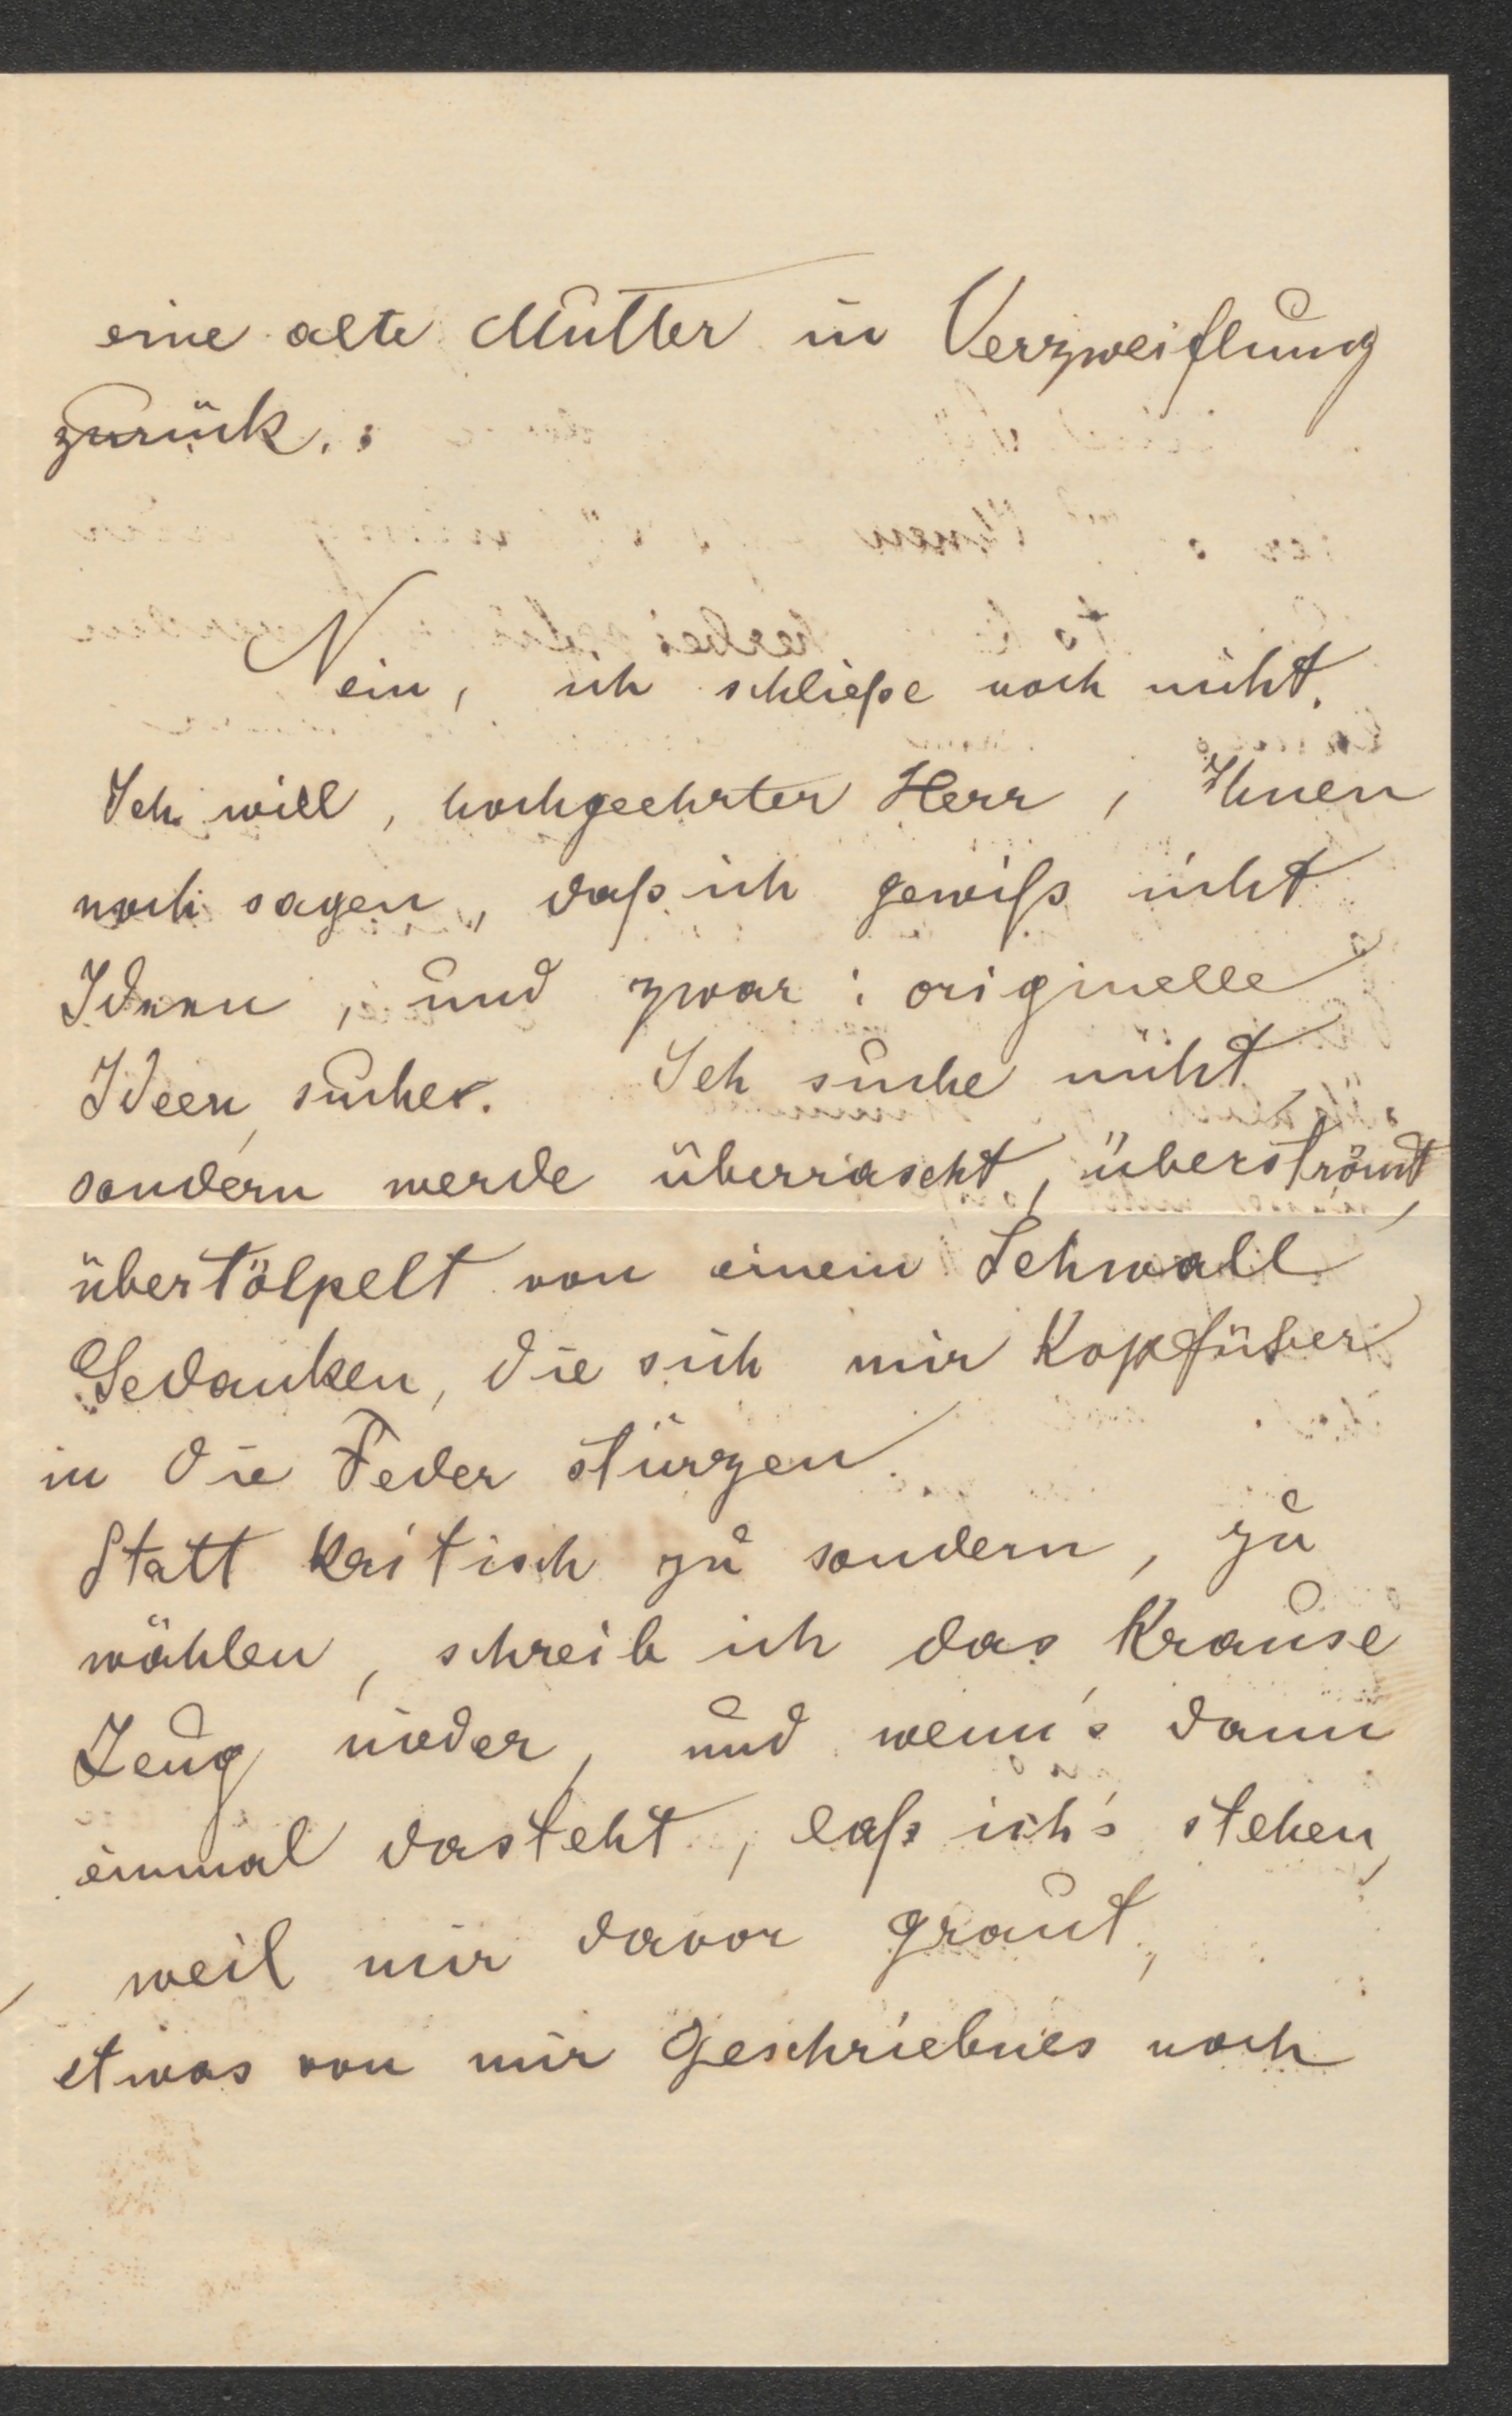 eine alte Mutter in Verzweiflung
zurück. :
Nein, ich schließe noch nicht.
Ich will, hochgeehrter Herr, Ihnen
noch sagen, daß ich gewiß nicht
Ideen, und zwar: originelle
Ideen suche. Ich suche nicht,
sondern werde überrascht, überströmt,
übertölpelt von einem Schwall
Gedanken, die sich mir Kopfüber
in die Feder stürzen.
Statt kritisch zu sondern, zu
wählen, schreib ich das Krause
Zeug nieder, und wenn's dann
einmal dasteht, laß ich's stehen,
weil mir davor graut,
etwas von mir Geschriebnes noch